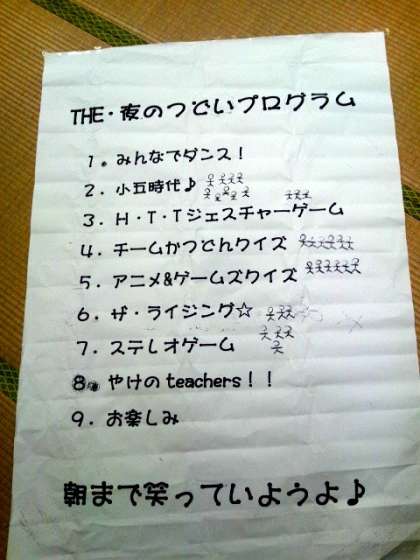 THE・夜のつどいプログラム
1. みんなでダンス!
2. 小五時代♪
3. H・T・Tジェスチャーゲーム
4. チームかつどんクイズ
5. アニメ&ゲームズクイズ
6. ザ・ライジング☆
7. ステレオゲーム
8. やけのteachers!!
9. お楽しみ
朝まで笑っていようよ♪